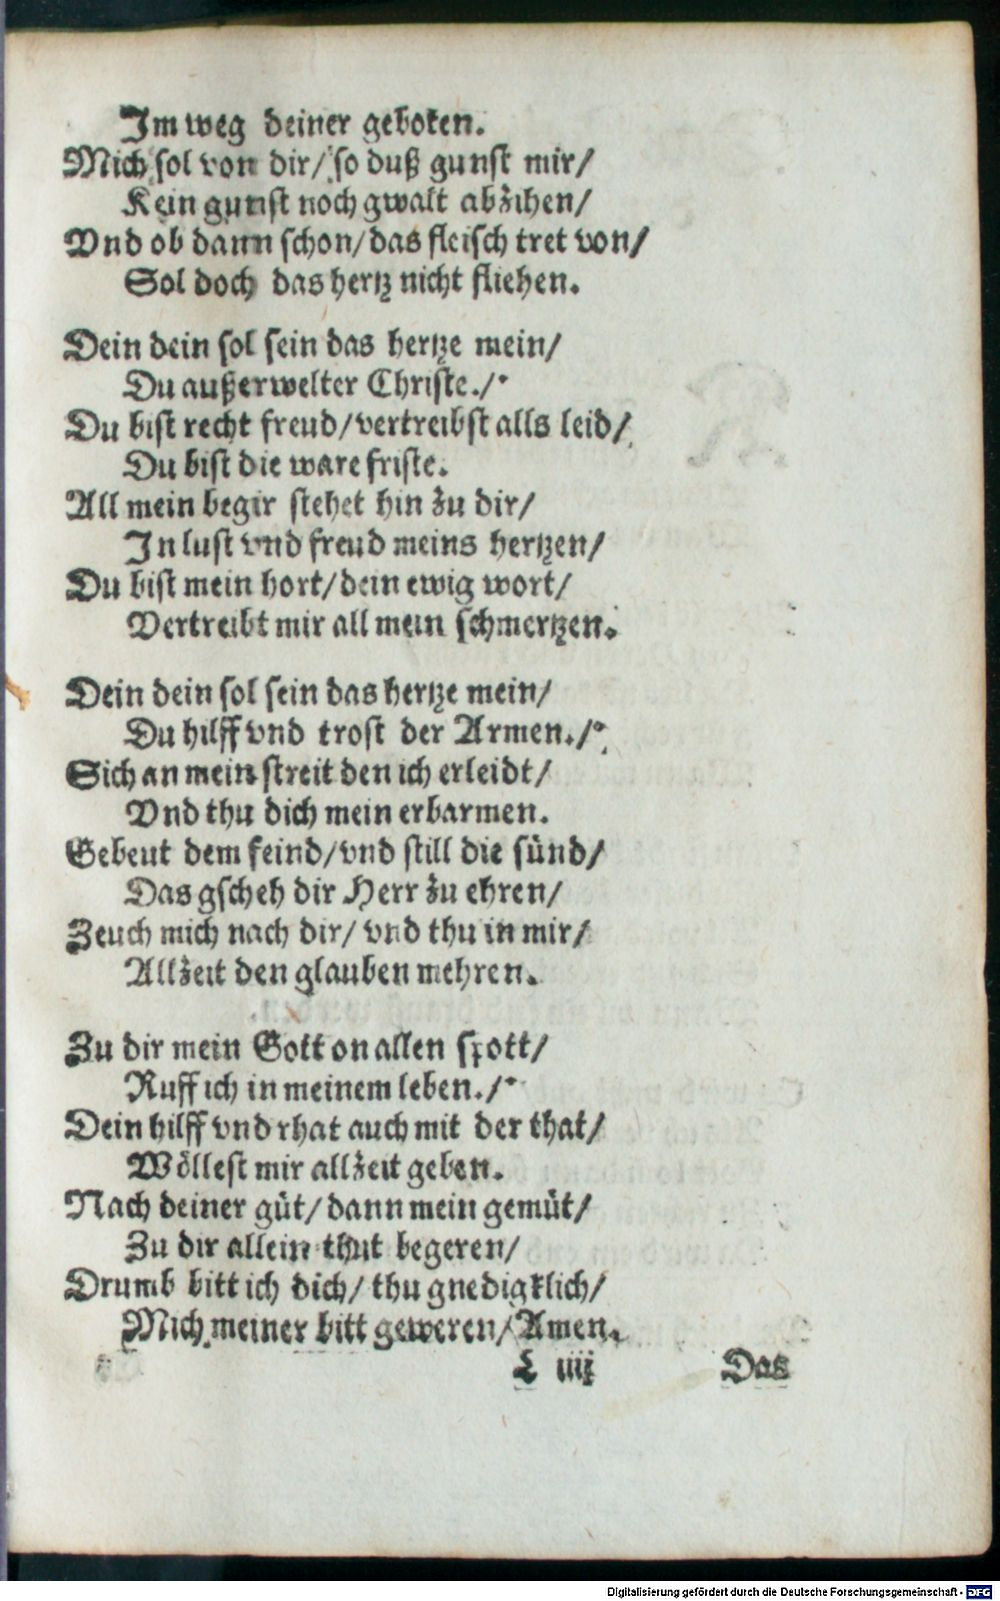 Im weg deiner geboten.
Mich sol von dir/ so duß gunst mir/
Kein gunst noch gwalt abzihen/
Vnd ob dann schon/ das fleisch tret von/
Sol doch das hertz nicht fliehen.
Dein dein sol sein das hertze mein/
Du außerwelter Christe./•
Du bist recht freud/ vertreibst alls leid/
Du bist die ware friste.
All mein begir stehet hin zu dir/
In lust vnd freud meins hertzen/
Du bist mein hort/ dein ewig wort/
Vertreibt mir all mein schmertzen.
Dein dein sol sein das hertze mein/
Du hilff vnd trost der Armen./•
Sich an mein streit den ich erleidt/
Vnd thu dich mein erbarmen.
Gebeut dem feind/ vnd still die sünd/
Das gscheh dir Herr zu ehren/
Zeuch mich nach dir/ vnd thu in mir/
Allzeit den glauben mehren.
Zu dir mein Gott on allen spott/
Ruff ich in meinem leben./•
Dein hilff vnd rhat auch mit der that/
Wöllest mir allzeit geben.
Nach deiner güt/ dann mein gemüt/
Zu dir allein thut begeren/
Drumb bitt ich dich/ thu gnedigklich/
Mich meiner bitt geweren/ Amen.
L iiij Das
Digitalisierung gefördert durch die Deutsche Forschungsgemeinschaft - DFG